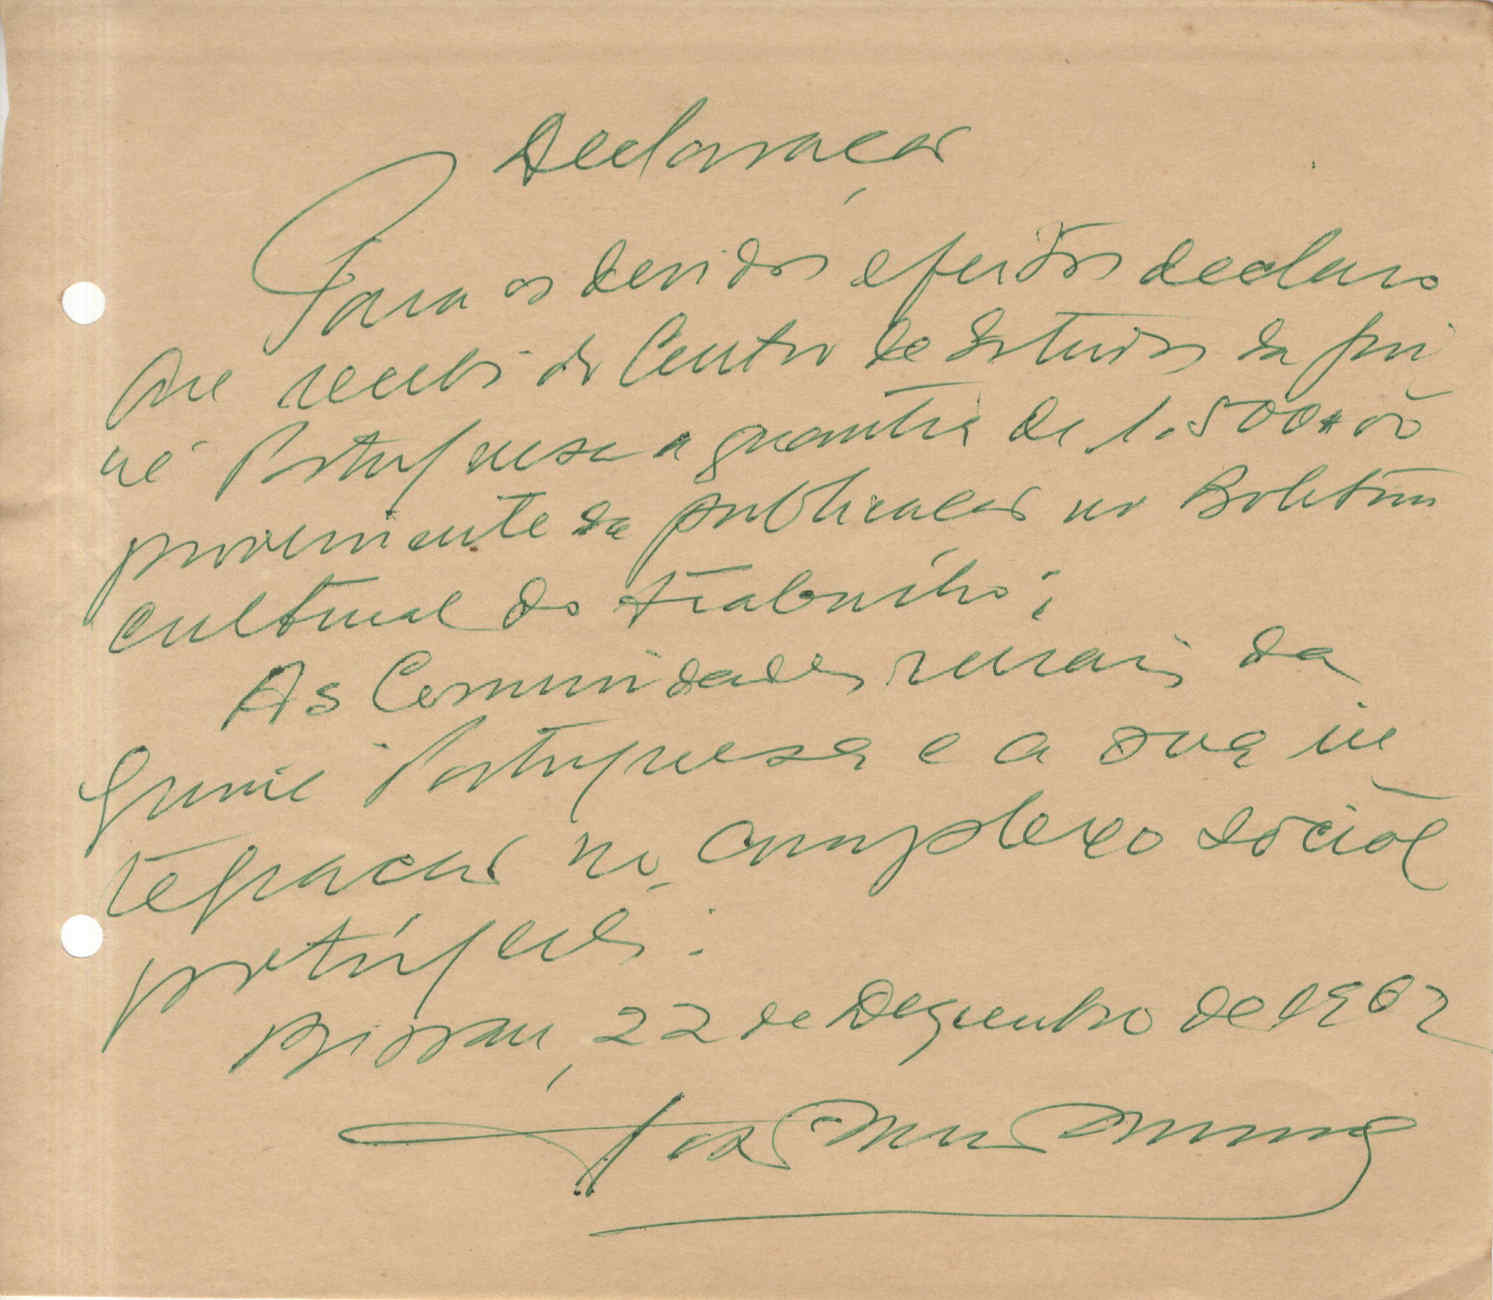 Declaração
Para os devidos efeitos declaro
que recebi do Centro de Estudos da Gui
né Portuguesa a quantia de 1.500$00
proveniente da publicação no Boletim
cultural do trabalho:
As Comunidades rurais da
Guiné Portuguesa e a sua in
tegração no complexo social
português.
Bissau, 22 de Dezembro de 1962